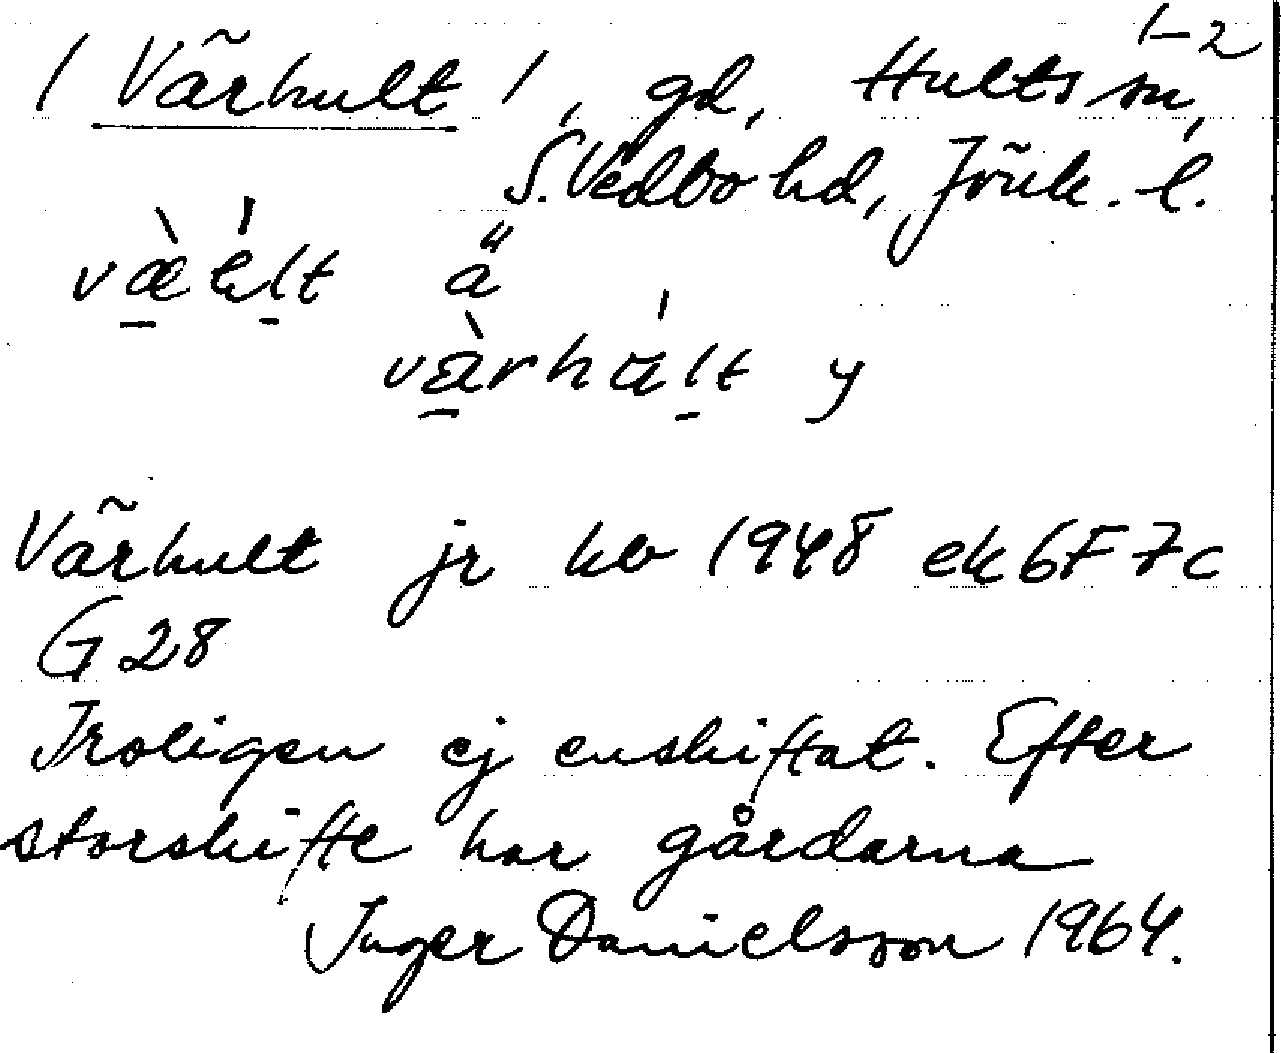 1–2
/ Värhult /, gd, Hults sn,
S. Vedbo hd, Jönk. l.
ä
y
Värhult jr kb 1948 ek 6F 7c
G 28
Troligen ej enskiftat. Efter
storskifte har gårdarna
Inger Danielsson 1964.